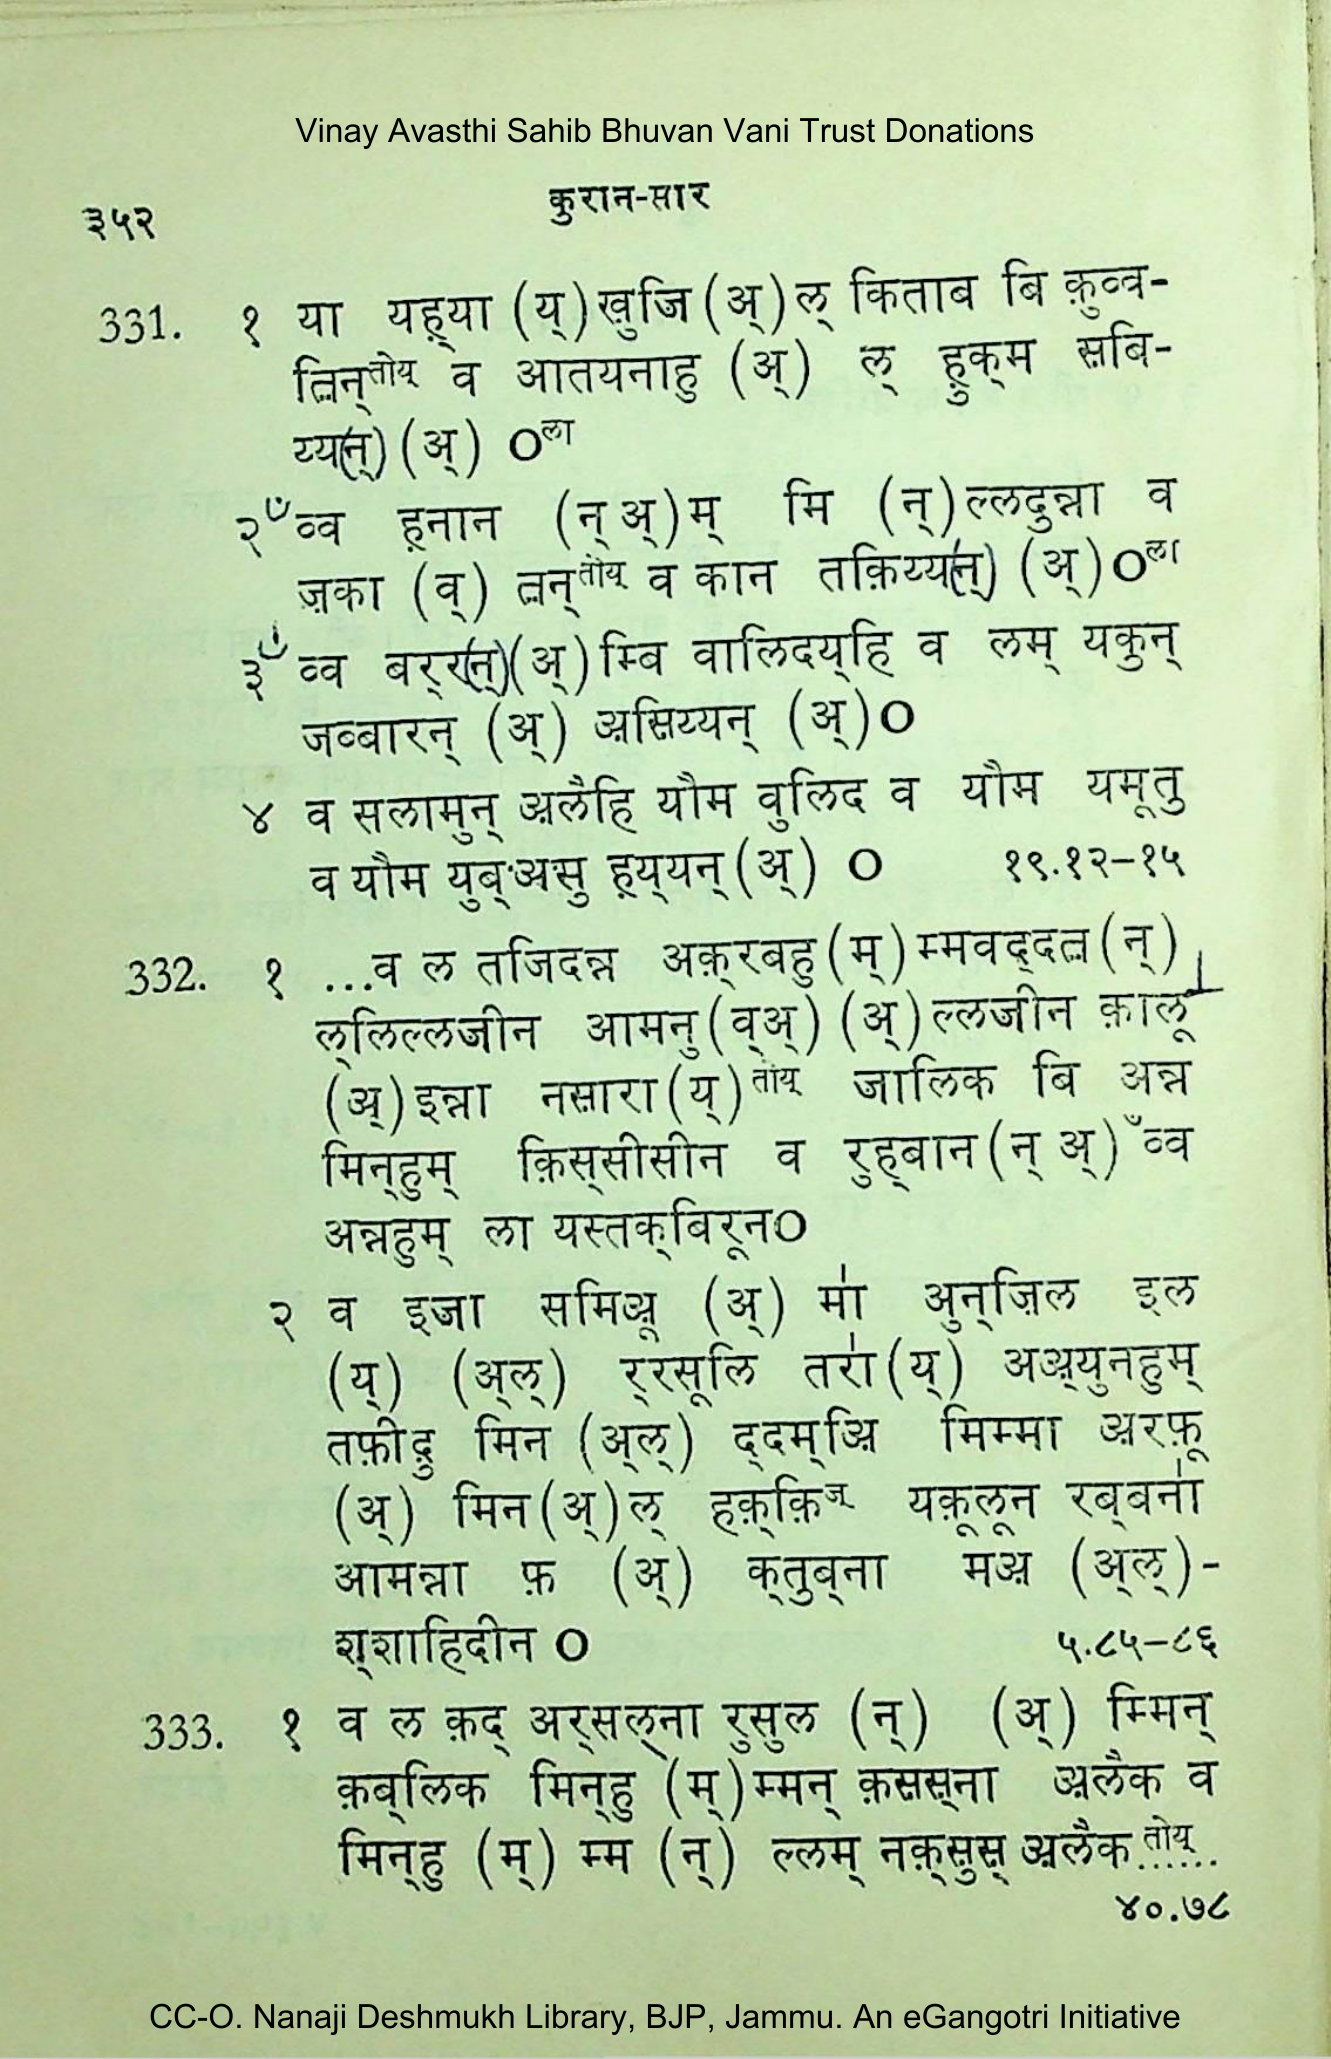 Vinay Avasthi Sahib Bhuvan Vani Trust Donations
३५२
कुरान-सार
331. १ या यह़्या (य्) ख़ुजि (अ्) ल् किताब बि क़ुव्व-
तिन्तोय् व आतयनाहु (अ्) ल् ह़ुक्म स़बि-
य्य(न्) (अ्) Oला
२ ँव्व ह़नान (न् अ्) म् मि (न्) ल्लदुन्ना व
ज़का (व्) तन्तोय् व कान तक़िय्य(न्) (अ्) Oला
३ ँव्व बर्र(न्) (अ्) म्बि वालिदय्हि व लम् यकुन्
जव्बारन् (अ्) अ़स़िय्यन् (अ्) O
४ व सलामुन् अ़लैहि यौम वुलिद व यौम यमूतु
व यौम युब्अ़सु ह़य्यन् (अ्) O १९.१२–१५
332. १ ...व ल तजिदन्न अक़्रबहु (म्) म्मवद्दत (न्)
ल्लिल्लजीन आमनु (व्अ्) (अ्) ल्लजीन क़ालू
(अ्) इन्ना नस़ारा (य्) तोय् जालिक बि अन्न
मिन्हुम् क़िस्सीसीन व रुह्बान (न् अ्) ँव्व
अन्नहुम् ला यस्तक्बिरूनO
२ व इजा समिअ़ू (अ्) मा॑ अुन्ज़िल इल
(य्) (अ्ल्) र्रसूलि तरा॑ (य्) अअ़्युनहुम्
तफ़ीद़ु मिन (अ्ल्) द्दम्अ़ि मिम्मा अ़रफ़ू
(अ्) मिन (अ्) ल् हक़्क़िज् यक़ूलून रब्बना॑
आमन्ना फ़ (अ्) क्तुब्ना मअ़ (अ्ल्)-
श्शाहिदीन O ५.८५–८६
333. १ व ल क़द् अर्सल्ना रुसुल (न्) (अ्) म्मिन्
क़ब्लिक मिन्हु (म्) म्मन् क़स़स़्ना अ़लैक व
मिन्हु (म्) म्म (न्) ल्लम् नक़्स़ुस़् अ़लैक तोय्......
४०.७८
CC-O. Nanaji Deshmukh Library, BJP, Jammu. An eGangotri Initiative